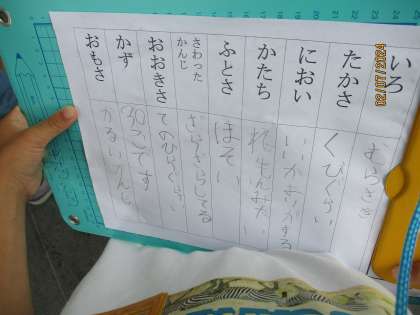 いろ
むらさき
たかさ
くびぐらい
におい
いいかおりがする
かたち
ふとさ
ほそい
さわった
かんじ
さらさらしてる
おおきさ
てのひらぐらい
かず
30こです
おもさ
かるいかんじ
02/07/2024